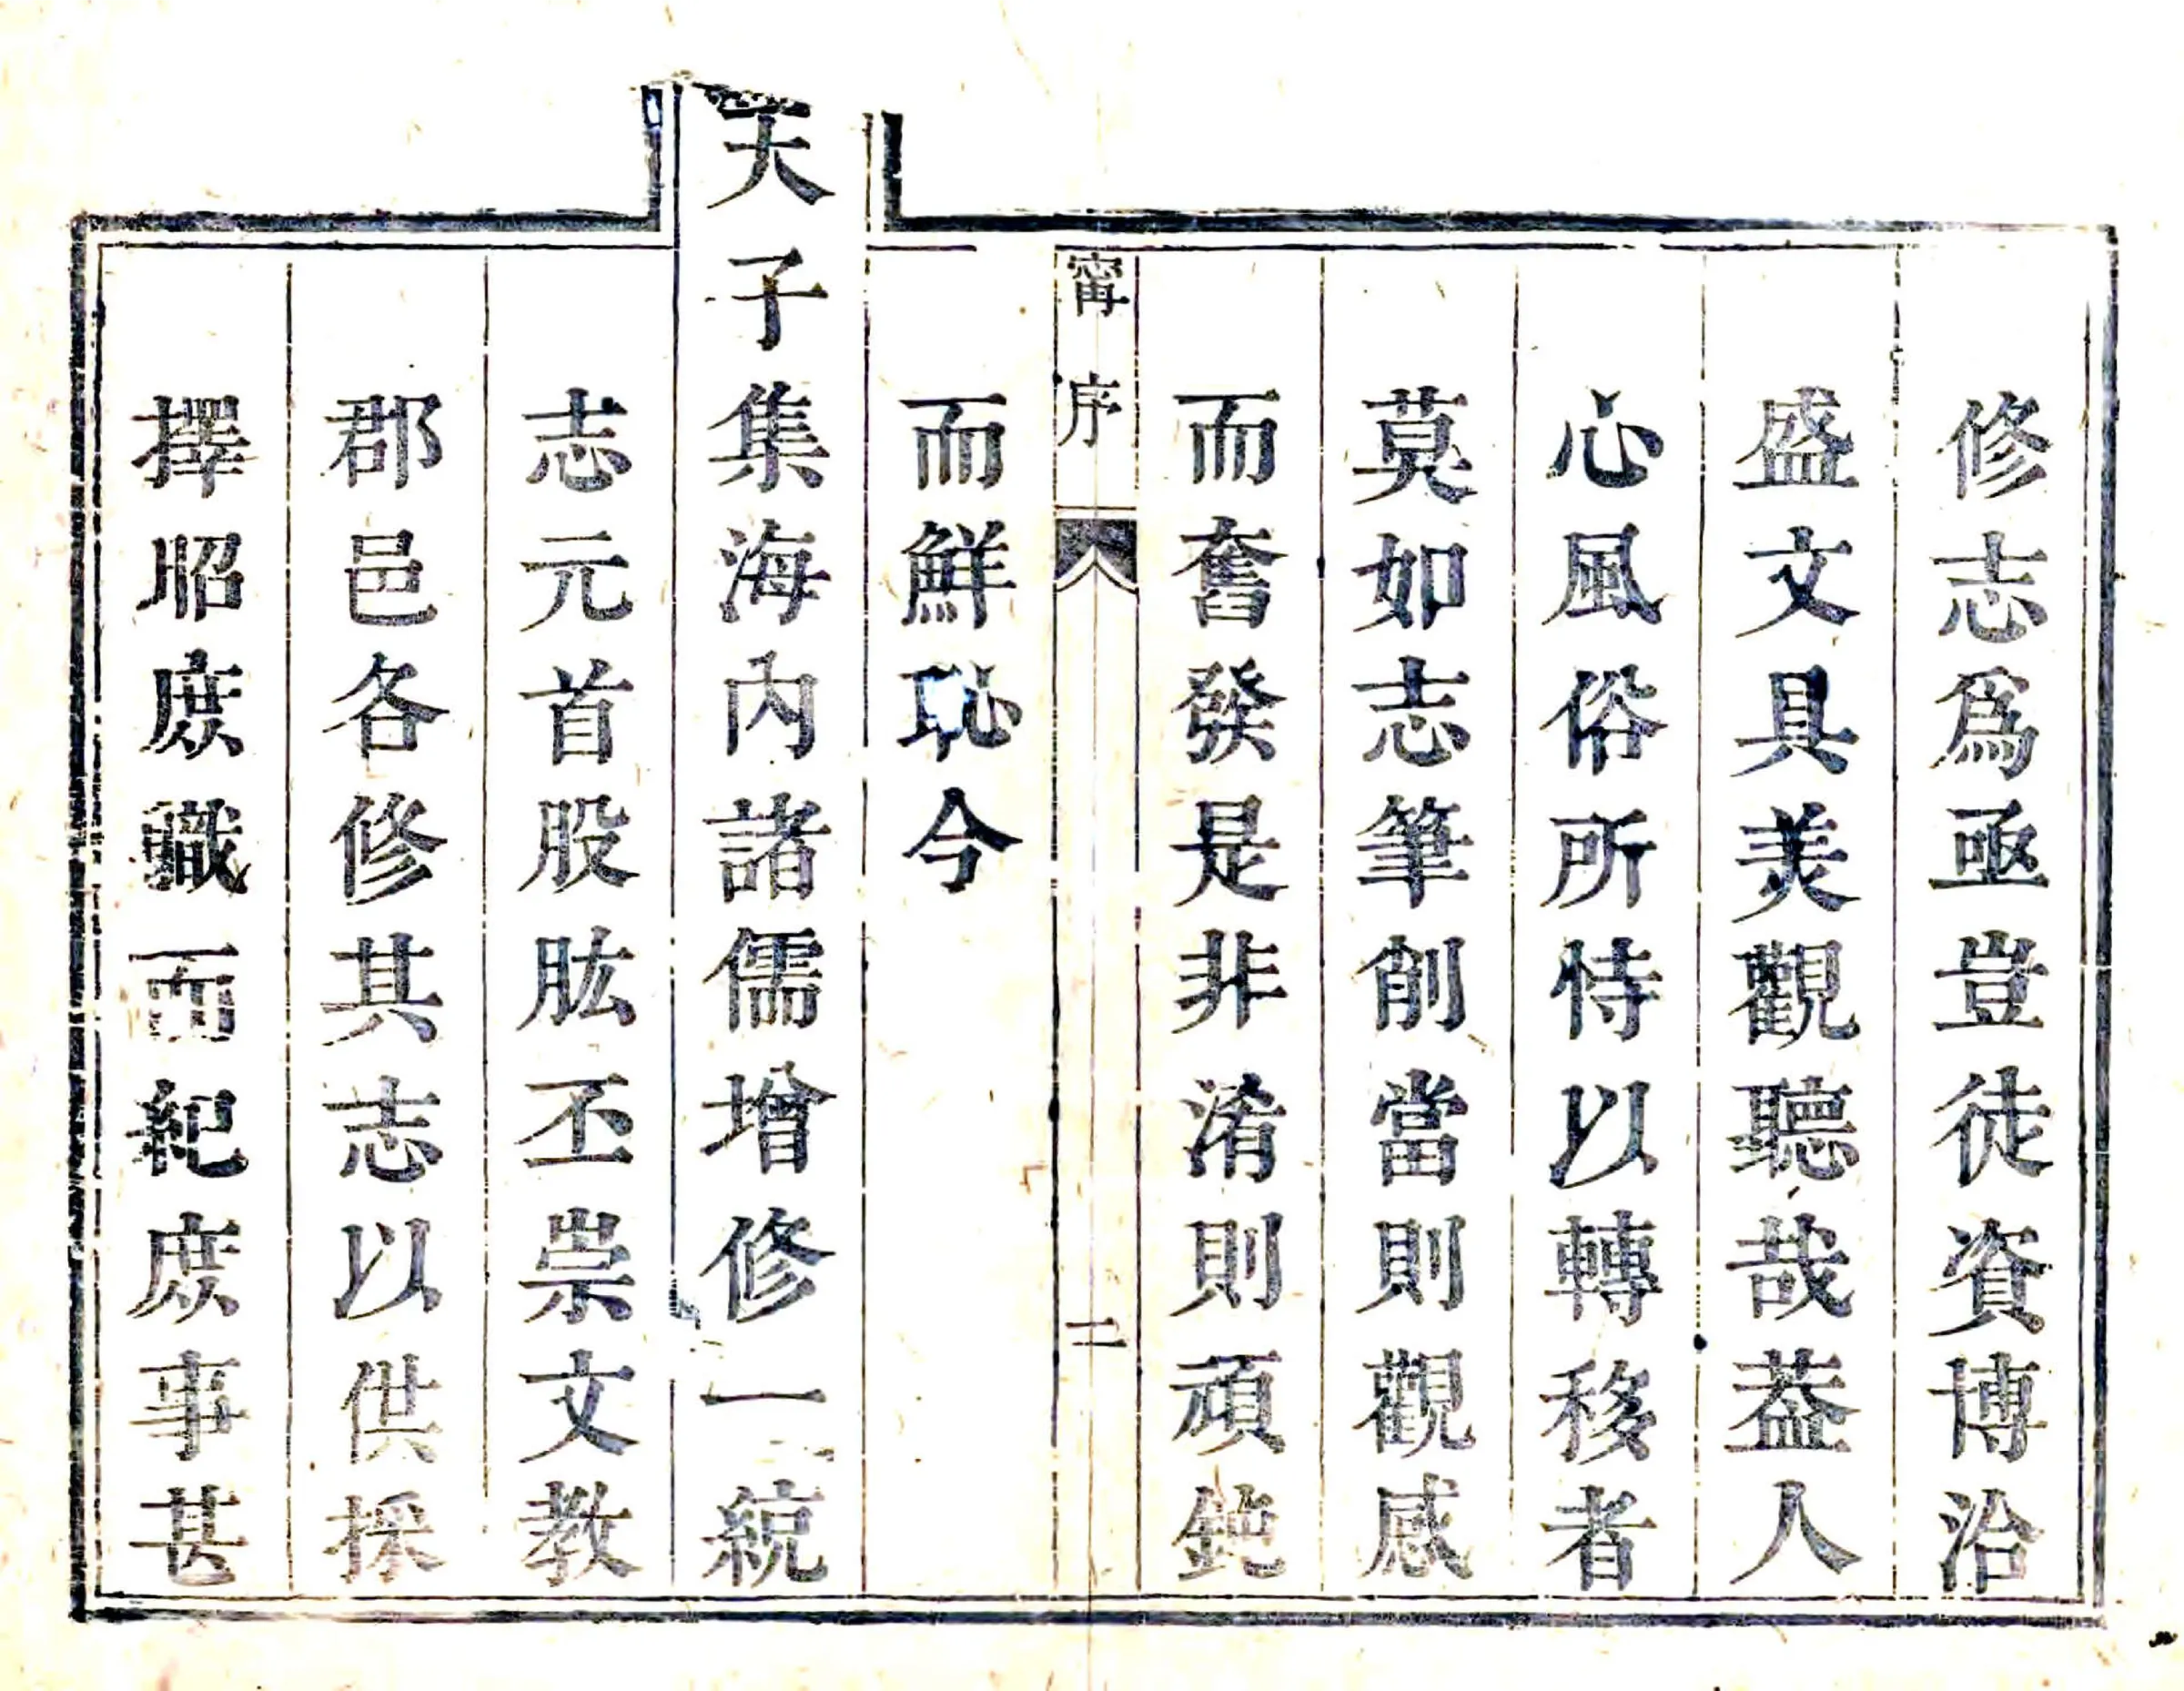 修志爲亟豈徒資博洽
盛文具美觀聽哉葢人
心風俗所恃以轉移者
莫如志筆削當則觀感
而奮發是非淆則頑鈍
甯序 二
而鮮恥今
天子集海內諸儒增修一統
志元首股肱丕崇文教
郡邑各修其志以供採
擇昭庶職而紀庶事甚